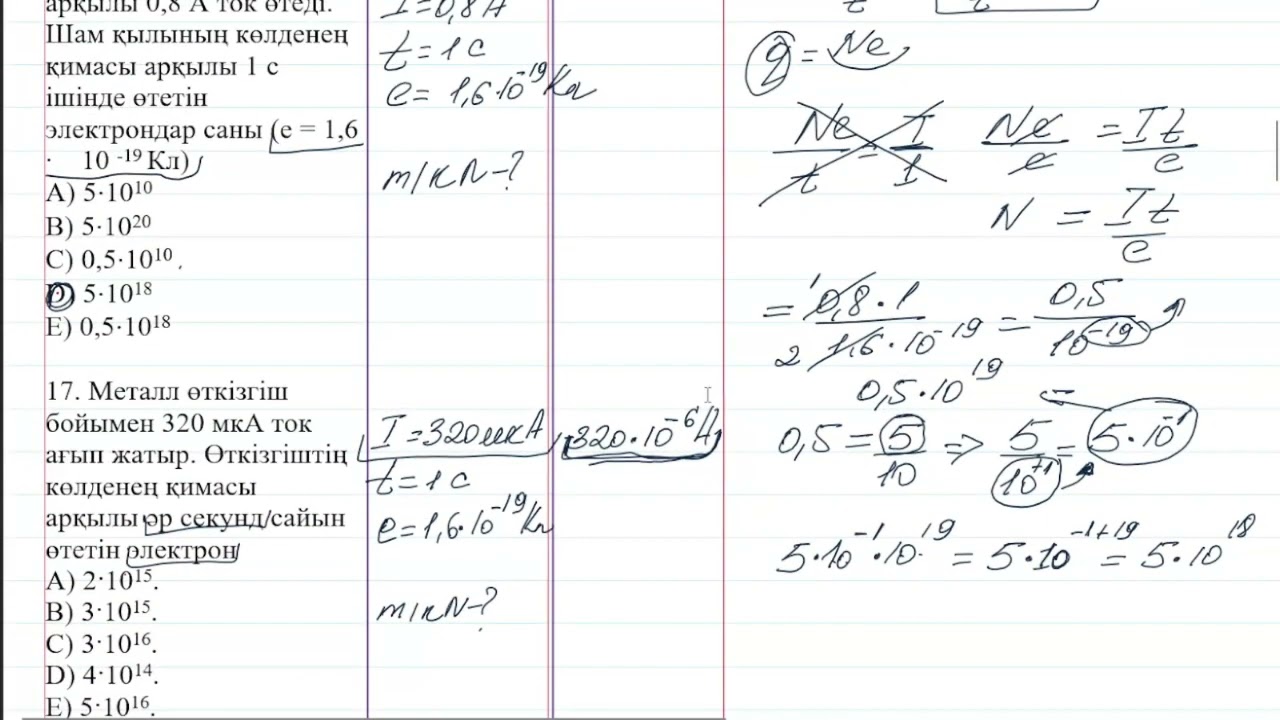 арқылы 0,8 А ток өтеді.
Шам қылының көлденең
қимасы арқылы 1 с
ішінде өтетін
электрондар саны (e = 1,6
· 10 ⁻¹⁹ Кл)
A) 5·10¹⁰
B) 5·10²⁰
C) 0,5·10¹⁰.
D) 5·10¹⁸
E) 0,5·10¹⁸
17. Металл өткізгіш
бойымен 320 мкА ток
ағып жатыр. Өткізгіштің
көлденең қимасы
арқылы әр секунд сайын
өтетін электрон
A) 2·10¹⁵.
B) 3·10¹⁵.
C) 3·10¹⁶.
D) 4·10¹⁴.
E) 5·10¹⁶.
I=0,8A
t=1c
e=1,6·10⁻¹⁹Кл
т/к N-?
I=320мкА 320·10⁻⁶A
t=1c
e=1,6·10⁻¹⁹Кл
т/к N-?
q=Ne
Ne/t = I/1 Ne/e = It/e
N = It/e
= 0,8·1/1,6·10⁻¹⁹ = 0,5/10⁻¹⁹
1
2
0,5·10¹⁹
0,5 = 5/10 => 5/10⁺¹ = 5·10⁻¹
5·10⁻¹·10¹⁹ = 5·10⁻¹⁺¹⁹ = 5·10¹⁸